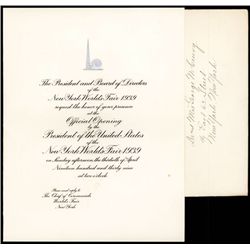 The President and Board of Directors
of the
New York World's Fair 1939
request the honor of your presence
at the
Official Opening
by the
President of the United States
of the
New York World's Fair 1939
on Sunday afternoon, the thirtieth of April
Nineteen hundred and thirty nine
at two o'clock
Please send reply to
The Chief of Commands
World's Fair
New York
New York, New York